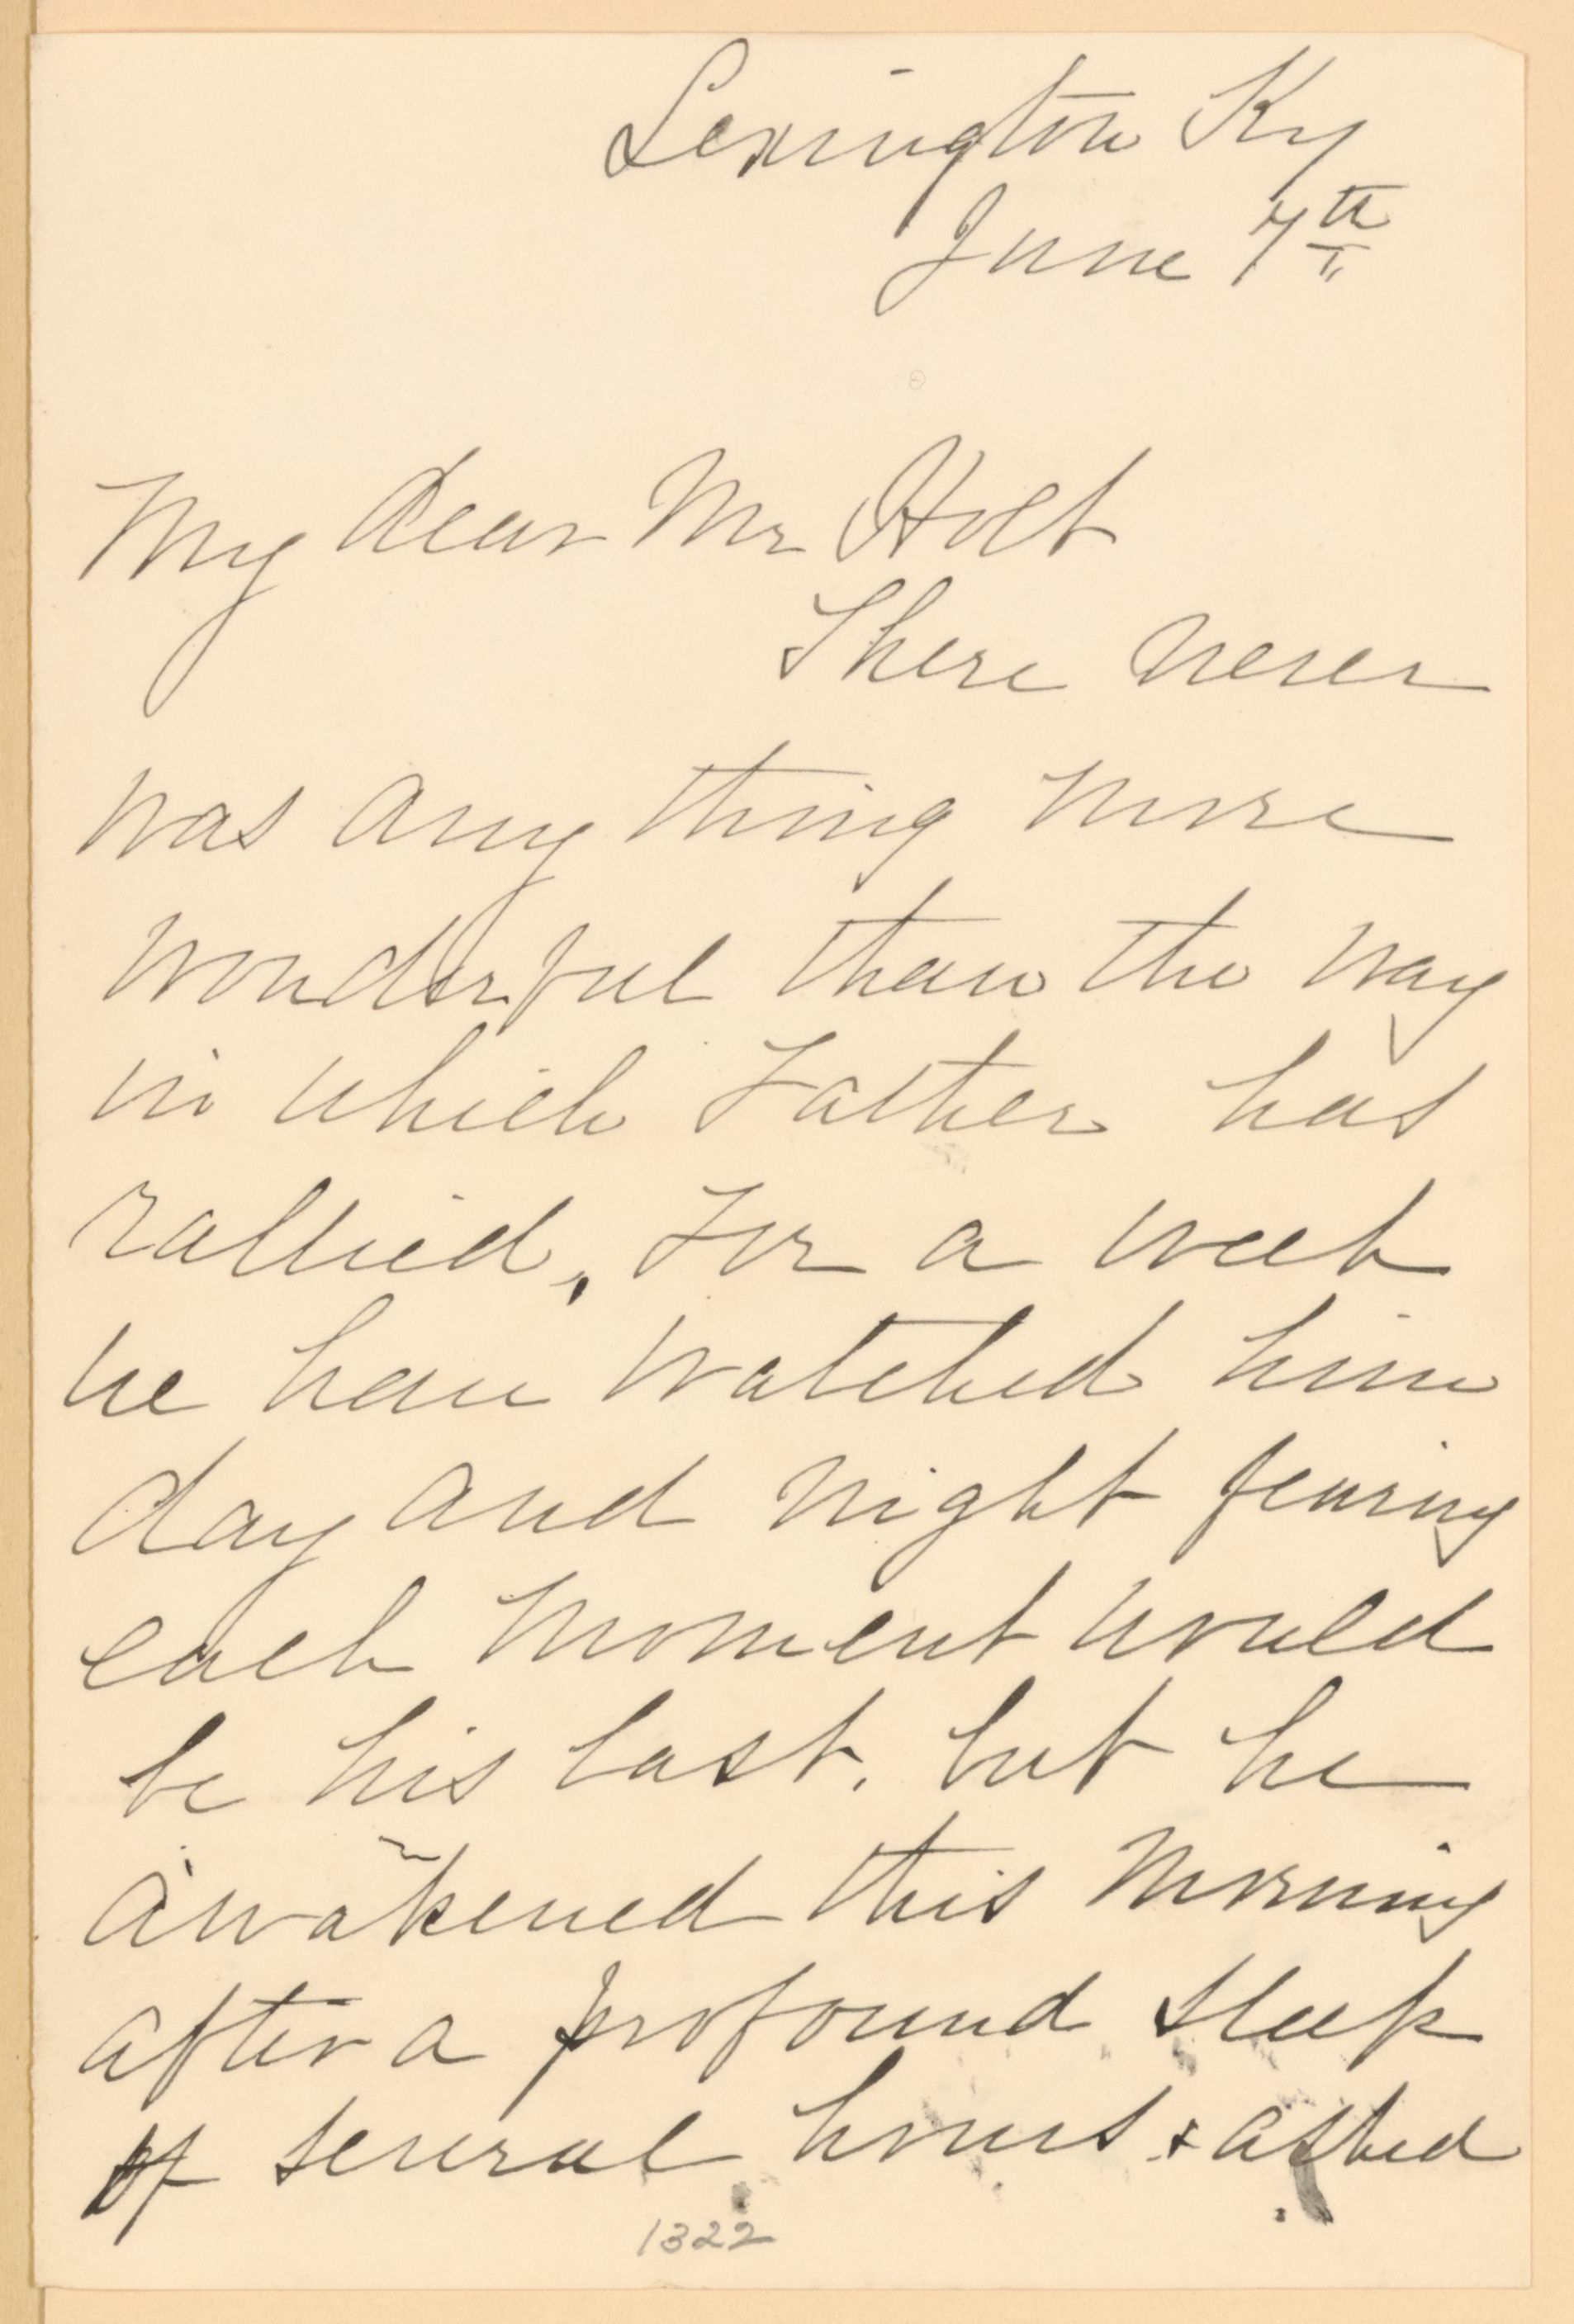 Lexington Ky
June 7th
My dear Mr Holt
There never
was any thing more
wonderful than the way
in which Father has
rallied, For a week
we have watched him
day and night fearing
each moment would
be his last, but he
awakened this morning
after a profound sleep
of several hours & asked
1322